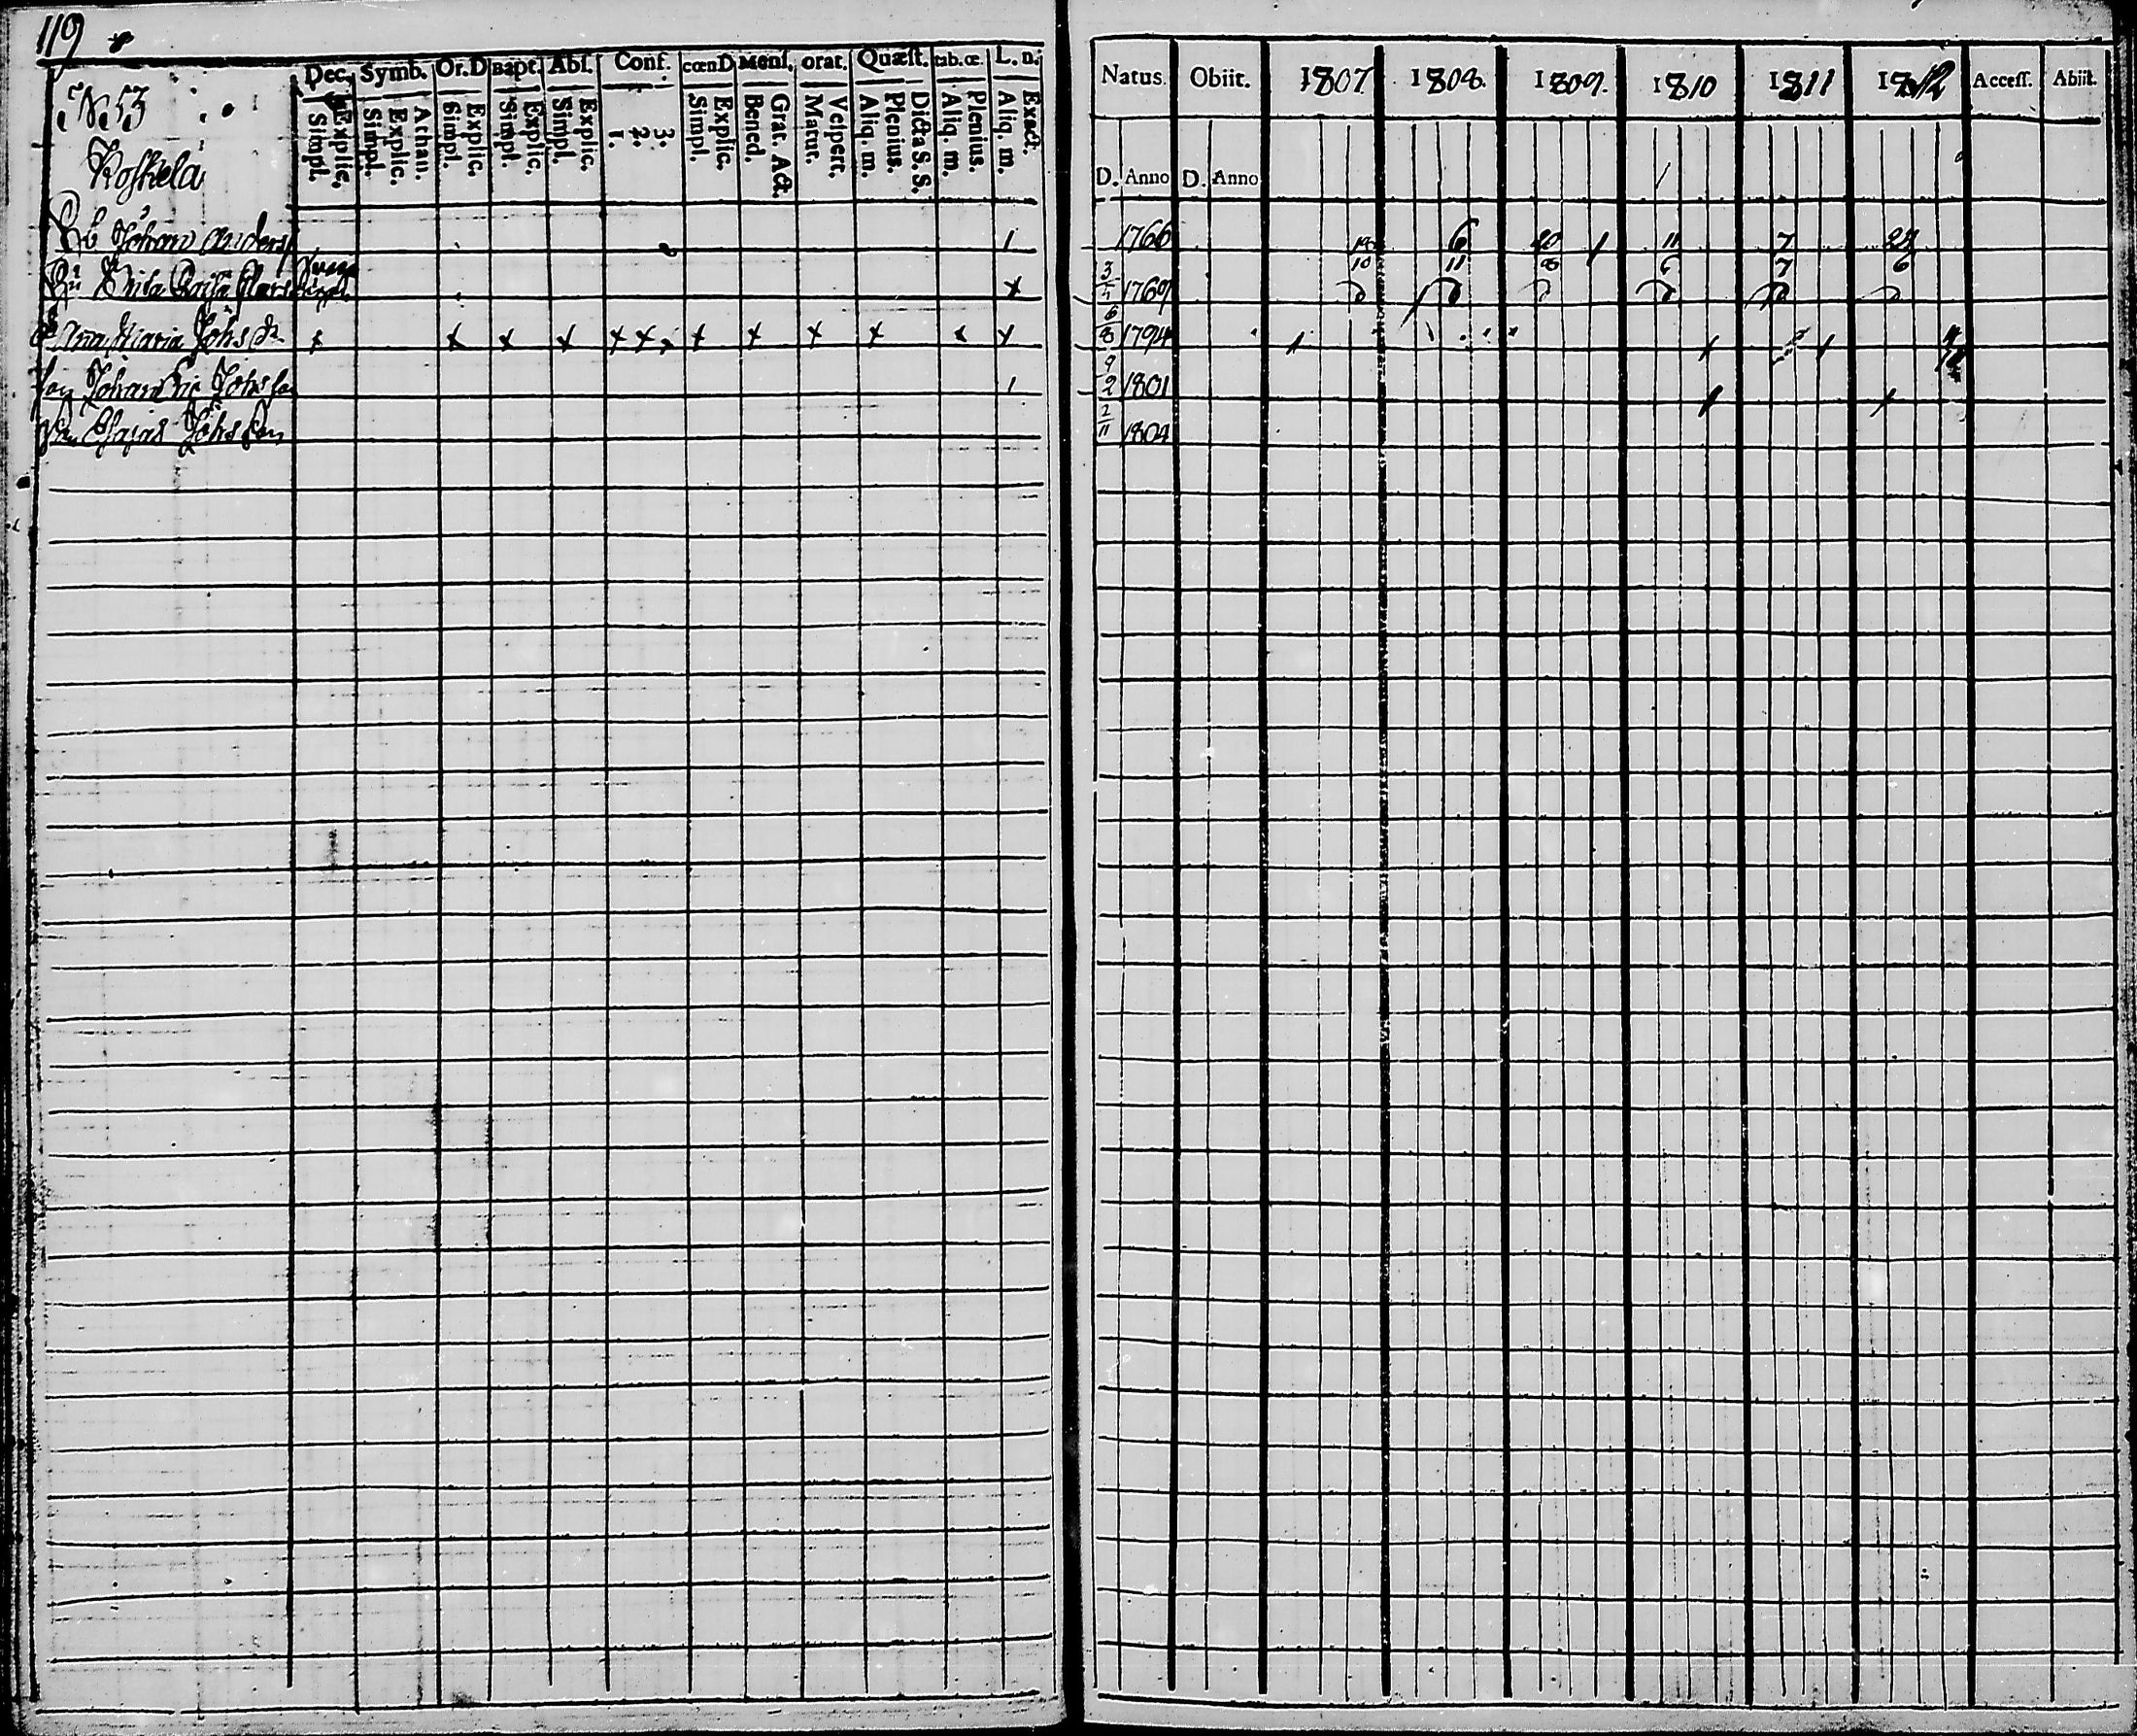 119
No 53
Koskela
Dec. Symb. Or.D Bapt. Abſ. Conf. cœnD Menſ. orat. Quæſt. tab.œ. L. n.
Simpl. Explic. Simpl. Explic. Athan. Simpl. Explic. Simpl. Explic. Simpl. Explic. 1. 2. 3. Simpl. Explic. Bened. Grat. Act. Matut. Veſpert. Aliq. m. Plenius. Dicta S. S. Aliq. m. Plenius. Aliq. m. Exact.
Natus. Obiit. 1807 1808. 1809. 1810 1811 1812 Acceſſ. Abiit.
D. Anno D. Anno
Johan Anders 1766 6 20 11 7 24
Brita Caisa 3/4 1769 10 11 8 6 7 6
Maria Johs dr 6/8 1794
son Johan Eric Johs son 9/2 1801
Esaias Johs son 2/11 1804